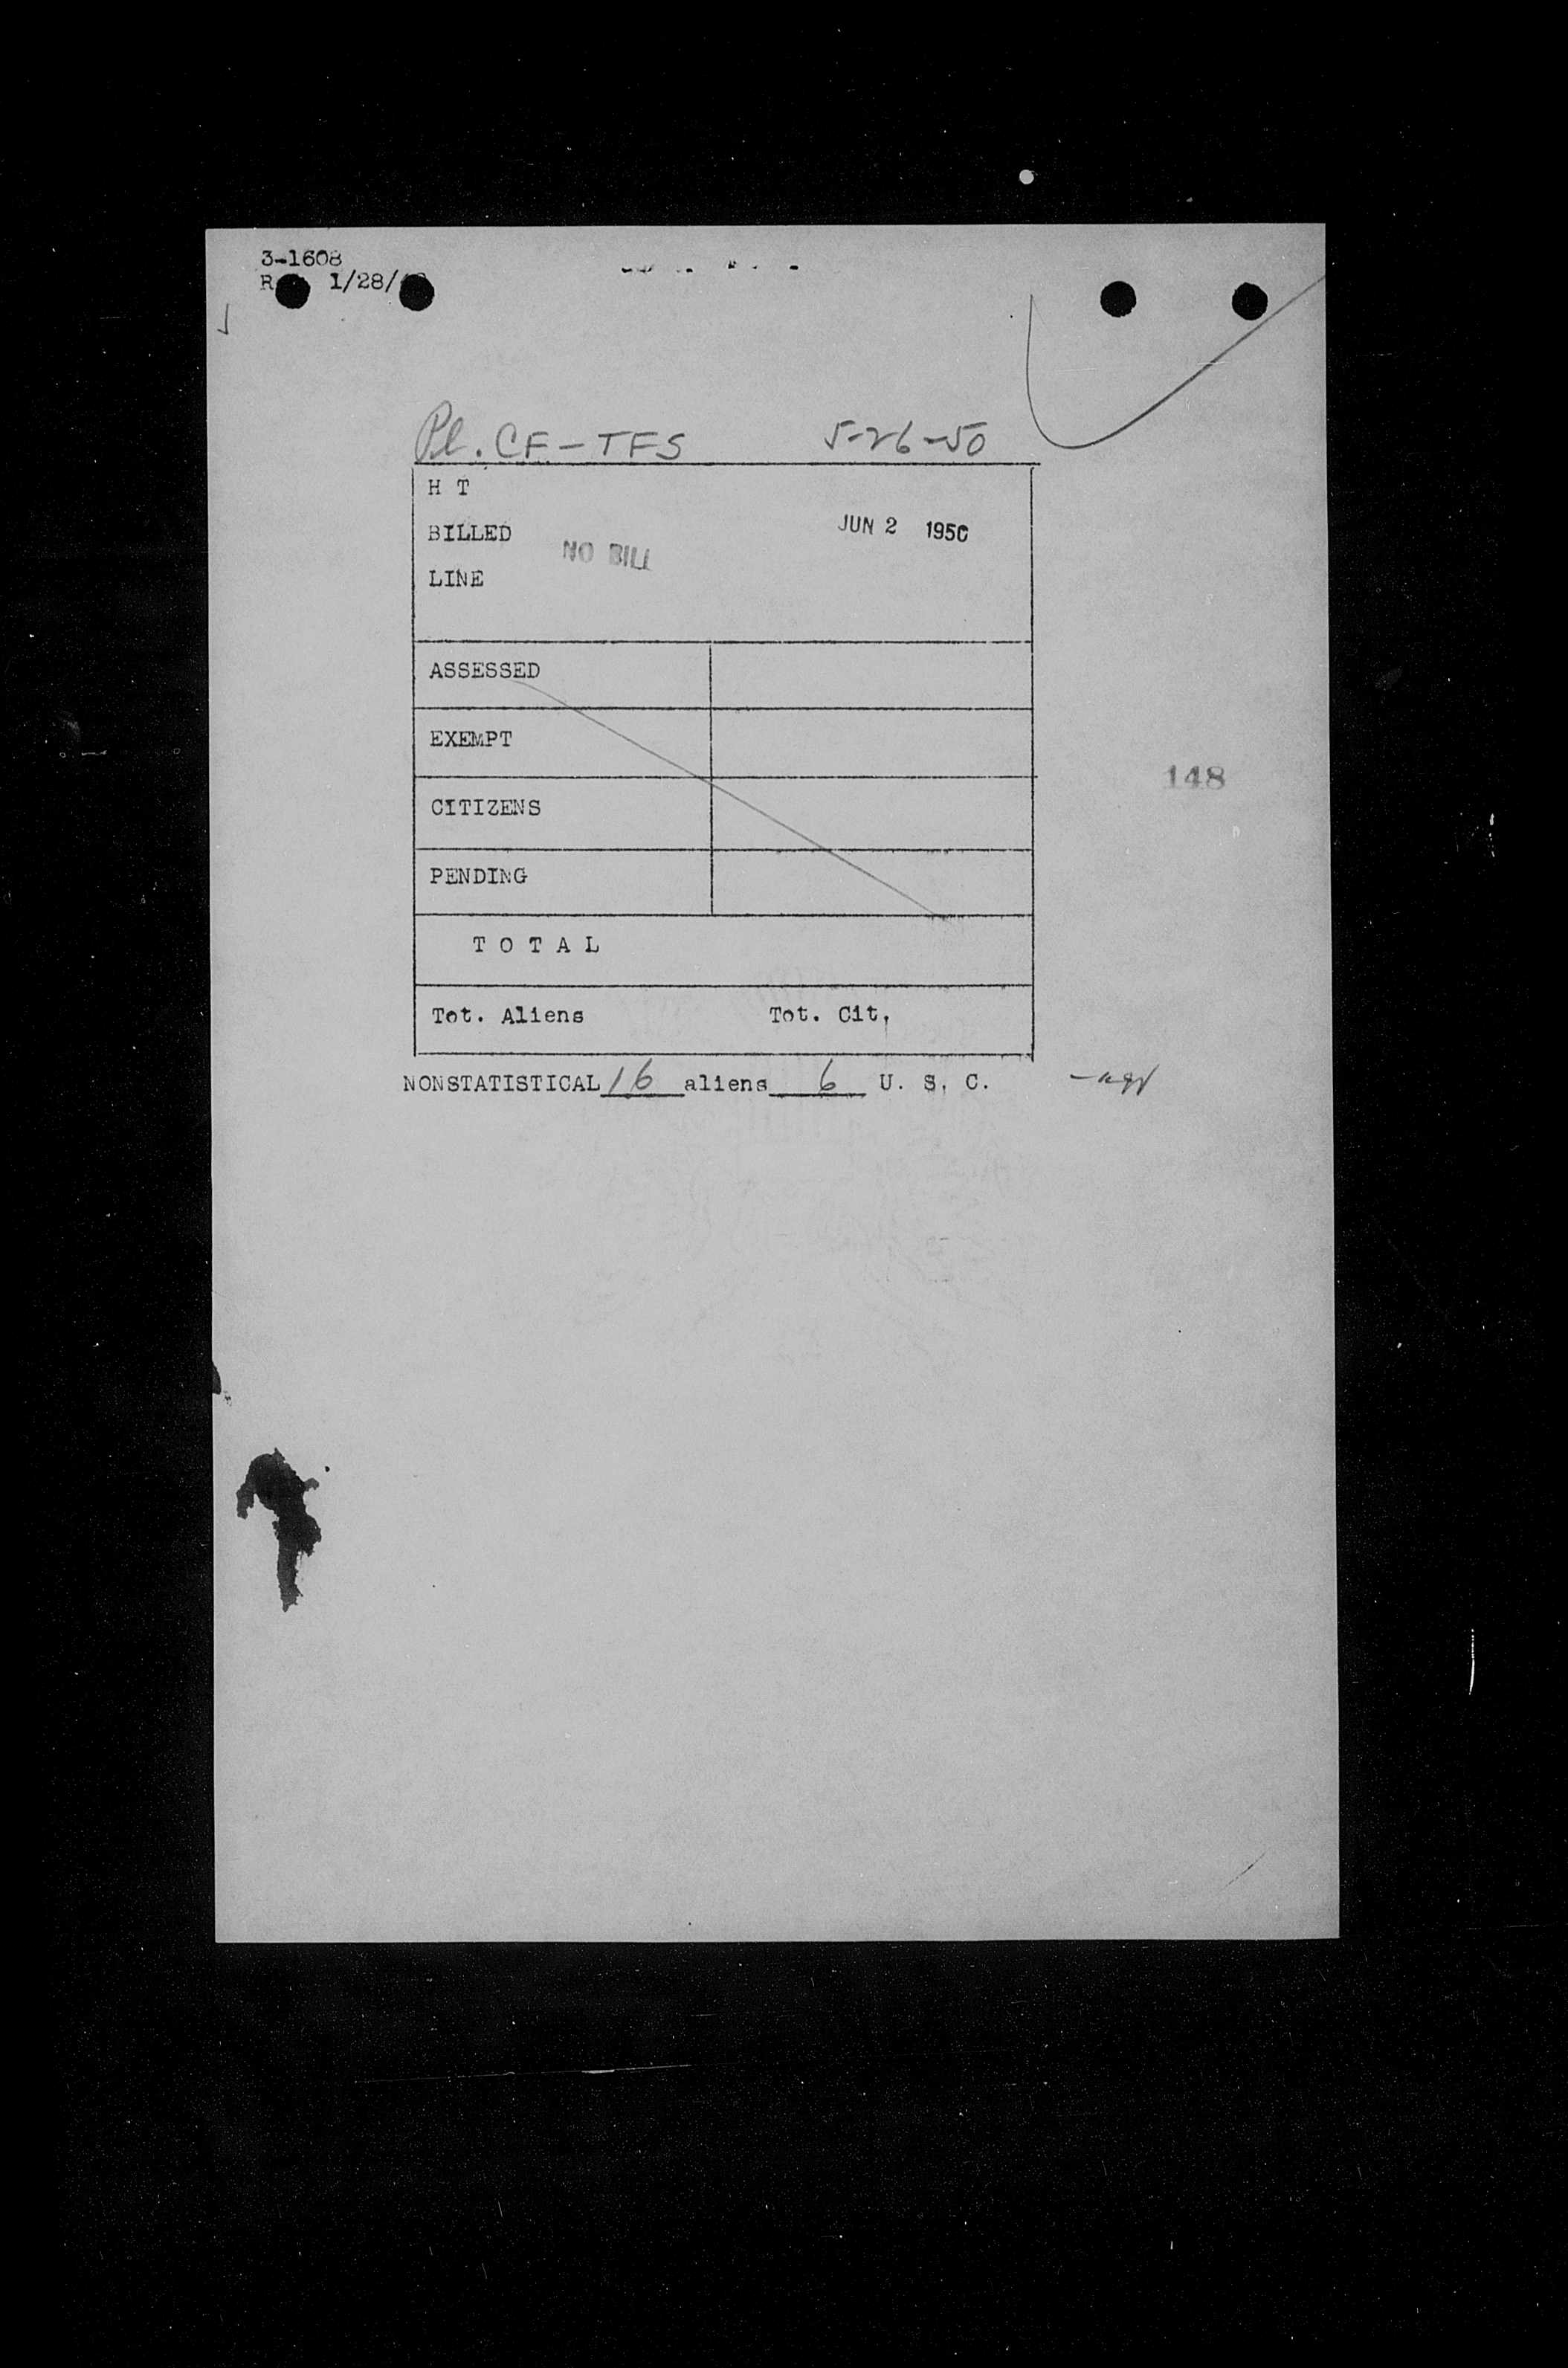 3-1608
1/28/
Pl. CF-TFS 5-26-50
H T
BILLED JUN 2 1950
NO BILL
LINE
ASSESSED
EXEMPT
148
CITIZENS
PENDING
T O T A L
Tot. Aliens Tot. Cit.
NONSTATISTICAL 16 aliens 6 U. S. C.